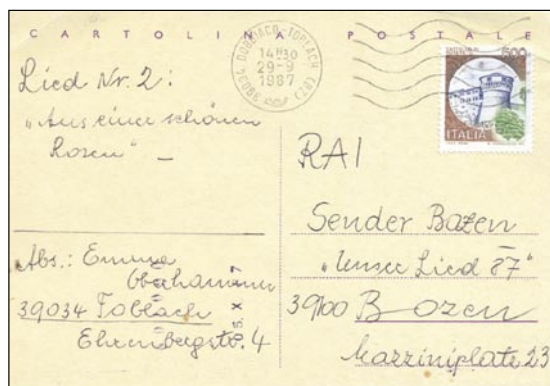 CARTOLINA POSTALE
39034 DOBBIACO-TOBLACH (BZ)
14-30
29-9
1987
500
ITALIA
Lied Nr. 2:
"Aus einer schönen
Rosen" —
Abs.: Emma
Oberhammer
39034 Toblach
Ehrenbergstr. 4
5. X
RAI
Sender Bozen
"Unser Lied 87"
39100 Bozen
Mazziniplatz 23